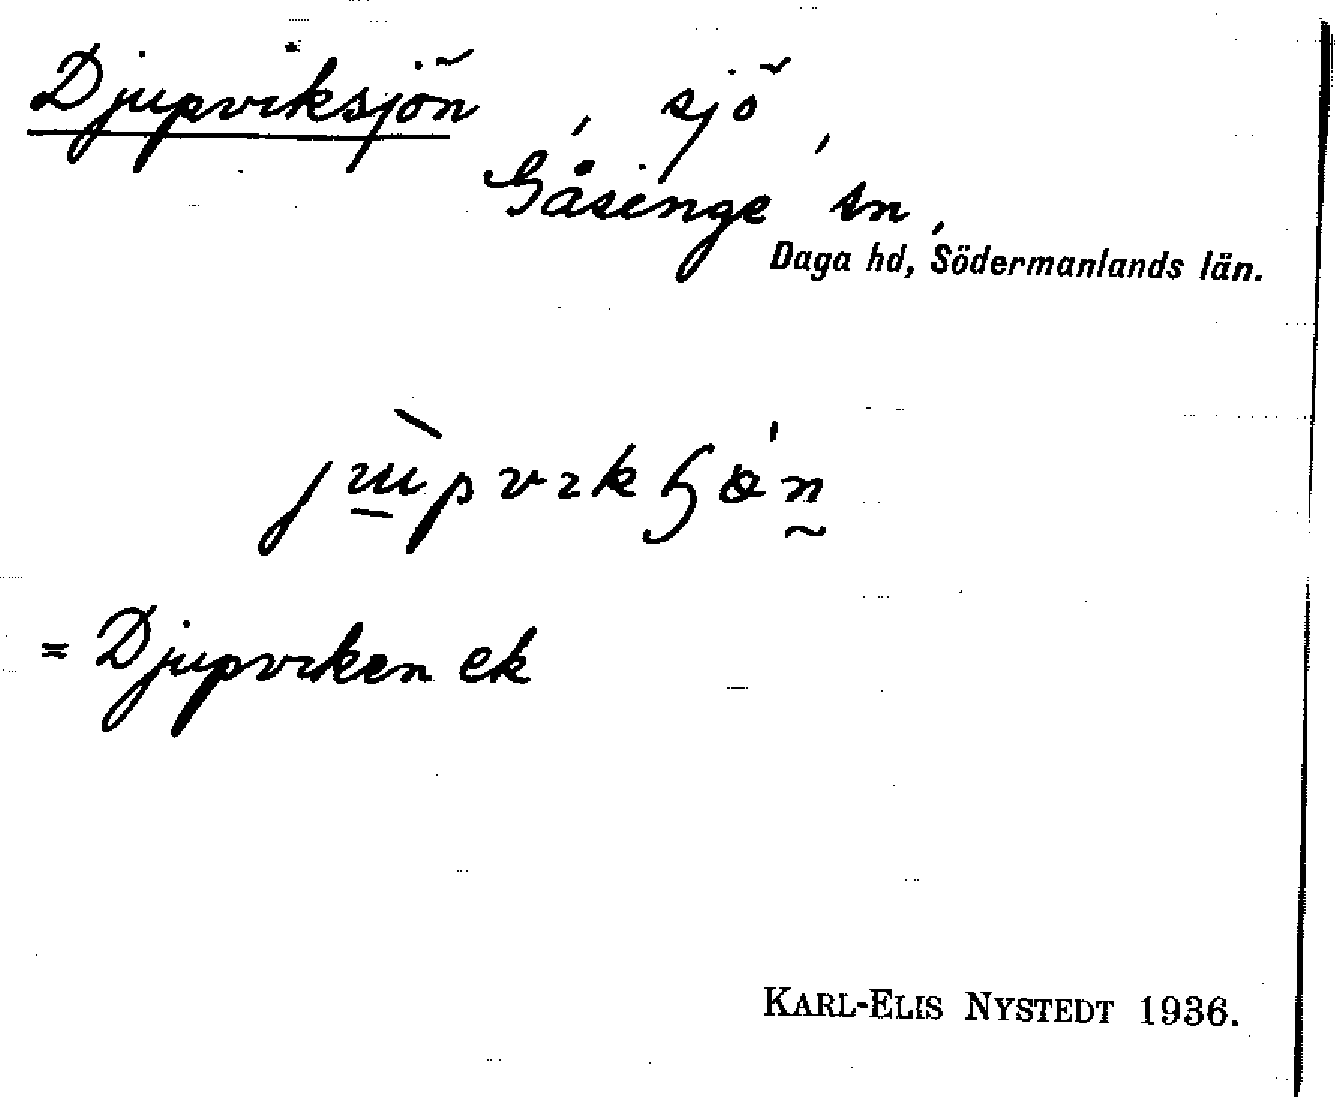 Djupviksjön, sjö,
Gåsinge sn,
Daga hd, Södermanlands län.
= Djupviken ek
KARL-ELIS NYSTEDT 1936.